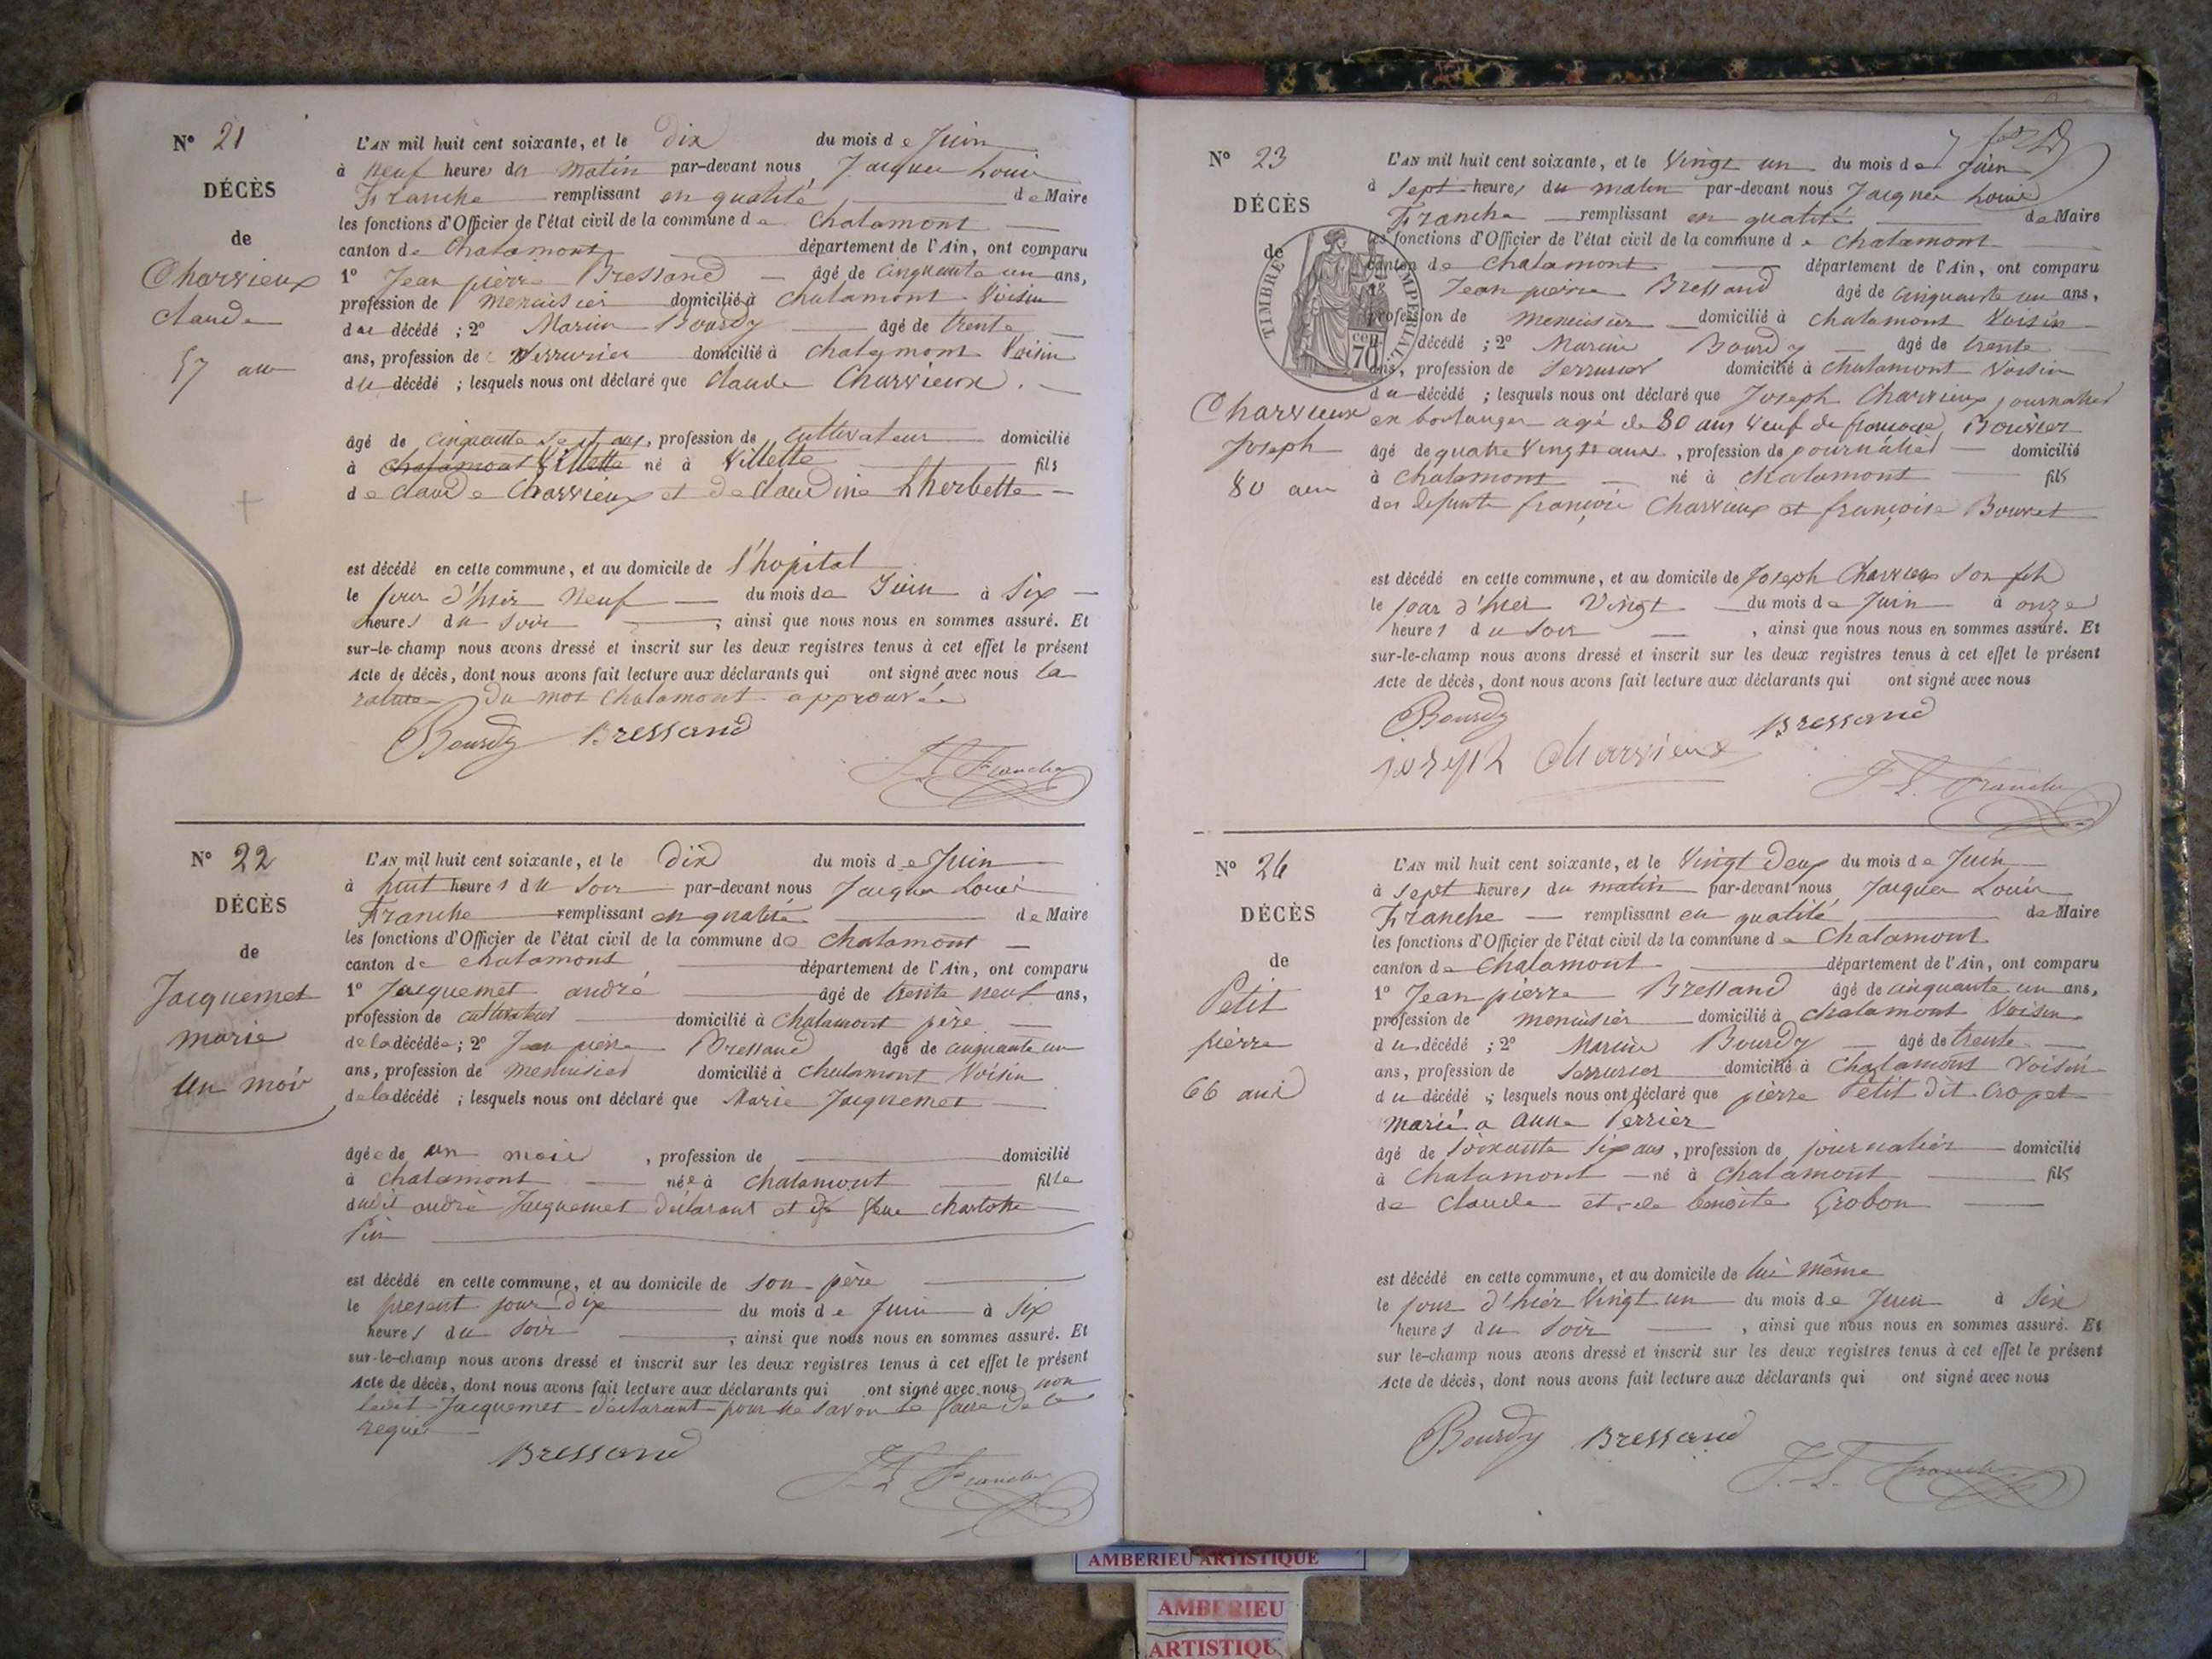 N° 21
DÉCÈS
de
Charvieux
claude
57 ans
L'AN mil huit cent soixante, et le Dix du mois de Juin
à neuf heures du matin par-devant nous Jacques Louis
Franche remplissant en qualité de Maire
les fonctions d'Officier de l'état civil de la commune de Chalamont
canton de Chalamont département de l'Ain, ont comparu
1° Jean pierre Bressand âgé de cinquante un ans,
profession de menuisier domicilié à chalamont Voisin
du décédé ; 2° Marin Bourdy âgé de trente
ans, profession de serrurier domicilié à chalamont Voisin
du décédé ; lesquels nous ont déclaré que claude Charvieux
âgé de cinquante sept ans, profession de cultivateur domicilié
à chalamont Villette né à Villette fils
de claude charvieux et de claudine Lherbette
est décédé en cette commune, et au domicile de l'hopital
le jour d'hier neuf du mois de Juin à six
heures du soir ; ainsi que nous nous en sommes assuré. Et
sur-le-champ nous avons dressé et inscrit sur les deux registres tenus à cet effet le présent
Acte de décès, dont nous avons fait lecture aux déclarants qui ont signé avec nous la
rature du mot chalamont approuvée
Bourdy Bressand
J L Franche
N° 22
DÉCÈS
de
Jacquemet
marie
un mois
L'AN mil huit cent soixante, et le Dix du mois de Juin
à huit heures du soir par-devant nous Jacques Louis
Franche remplissant en qualité de Maire
les fonctions d'Officier de l'état civil de la commune de chalamont
canton de chalamont département de l'Ain, ont comparu
1° Jacquemet andré âgé de trente neuf ans,
profession de cultivateur domicilié à chalamont père
de la décédée ; 2° Jean pierre Bressand âgé de cinquante un
ans, profession de menuisier domicilié à chalamont Voisin
de la décédé ; lesquels nous ont déclaré que Marie Jacquemet
âgée de un mois , profession de domicilié
à chalamont née à chalamont fille
dudit andré Jacquemet déclarant et de charlotte
est décédé en cette commune, et au domicile de son père
le present jour dix du mois de Juin à six
heures du soir ; ainsi que nous nous en sommes assuré. Et
sur-le-champ nous avons dressé et inscrit sur les deux registres tenus à cet effet le présent
Acte de décès, dont nous avons fait lecture aux déclarants qui ont signé avec nous non
ledit Jacquemet déclarant pour ne savoir le faire de ce
requis
Bressand
J L Franche
N° 23
DÉCÈS
de
TIMBRE IMPERIAL
70
Charvieux
Joseph
80 ans
L'AN mil huit cent soixante, et le Vingt un du mois de Juin
à sept heures du matin par-devant nous Jacques Louis
Franche remplissant en qualité de Maire
les fonctions d'Officier de l'état civil de la commune de chalamont
canton de chalamont département de l'Ain, ont comparu
1° Jean pierre Bressand âgé de cinquante un ans,
profession de menuisier domicilié à chalamont Voisin
décédé ; 2° Marin Bourdy âgé de trente
ans, profession de serrurier domicilié à chalamont Voisin
du décédé ; lesquels nous ont déclaré que Joseph Charvieux journalier
ex boulanger agé de 80 ans Veuf de françoise Bouvier
âgé de quatre Vingts ans , profession de journalier domicilié
à chalamont né à chalamont fils
des defunts françois Charvieux et françoise Bouvet
est décédé en cette commune, et au domicile de Joseph Charvieux son fils
le jour d'hier Vingt du mois de Juin à onze
heures du soir , ainsi que nous nous en sommes assuré. Et
sur-le-champ nous avons dressé et inscrit sur les deux registres tenus à cet effet le présent
Acte de décès, dont nous avons fait lecture aux déclarants qui ont signé avec nous
Bourdy Bressand
joseph Charvieux
J L Franche
N° 24
DÉCÈS
de
Petit
pierre
66 ans
L'AN mil huit cent soixante, et le Vingt Deux du mois de Juin
à sept heures du matin par-devant nous Jacques Louis
Franche remplissant en qualité de Maire
les fonctions d'Officier de l'état civil de la commune de Chalamont
canton de Chalamont département de l'Ain, ont comparu
1° Jean pierre Bressand âgé de cinquante un ans,
profession de menuisier domicilié à chalamont Voisin
du décédé ; 2° Marin Bourdy âgé de trente
ans, profession de serrurier domicilié à Chalamont Voisin
du décédé ; lesquels nous ont déclaré que pierre Petit dit Cropet
marié a anne Perrier
âgé de soixante six ans , profession de journalier domicilié
à Chalamont né à chalamont fils
de claude et de benoite Grobon
est décédé en cette commune, et au domicile de lui même
le jour d'hier Vingt un du mois de Juin à six
heures du soir , ainsi que nous nous en sommes assuré. Et
sur le-champ nous avons dressé et inscrit sur les deux registres tenus à cet effet le présent
Acte de décès, dont nous avons fait lecture aux déclarants qui ont signé avec nous
Bourdy Bressand
J. L. Franche
AMBERIEU ARTISTIQUE
AMBERIEU
ARTISTIQUE